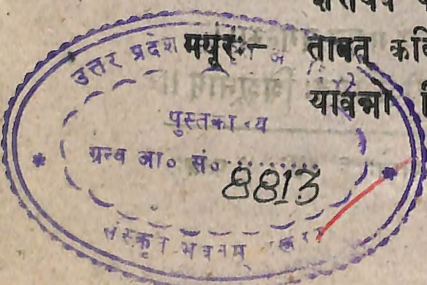 मयूरः— तावत् कवि
यावन्नो
उत्तर प्रदेश
पुस्तकालय
ग्रन्थ आ० सं० 8813
संस्कृत भवनम्